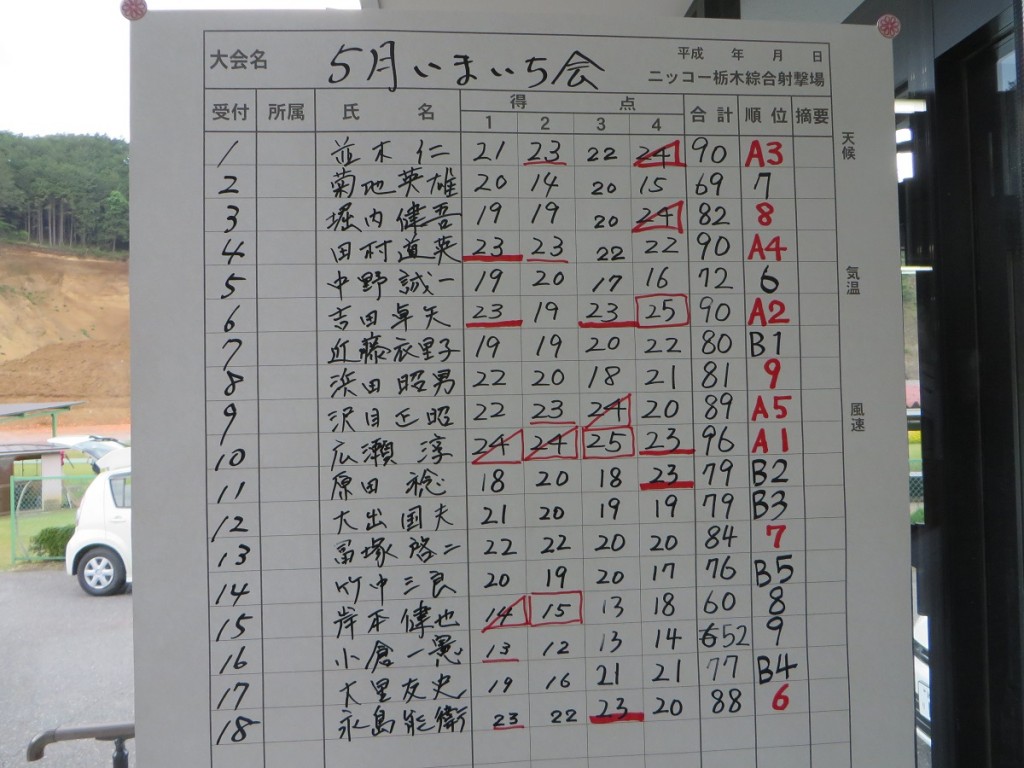 大会名 5月いまいち会 平成 年 月 日
ニッコー栃木綜合射撃場
受付 所属 氏 名 得 点 合計 順位 摘要
1 2 3 4
1 並木仁 21 23 22 24 90 A3
2 菊地英雄 20 14 20 15 69 7
3 堀内健吾 19 19 20 24 82 8
4 田村道英 23 23 22 22 90 A4
5 中野誠一 19 20 17 16 72 6
6 吉田卓矢 23 19 23 25 90 A2
7 近藤衣里子 19 19 20 22 80 B1
8 浜田昭男 22 20 18 21 81 9
9 沢目正昭 22 23 24 20 89 A5
10 広瀬淳 24 24 25 23 96 A1
11 原田稔 18 20 18 23 79 B2
12 大出国夫 21 20 19 19 79 B3
13 冨塚啓二 22 22 20 20 84 7
14 竹中三良 20 19 20 17 76 B5
15 岸本健也 14 15 13 18 60 8
16 小倉一憲 13 12 13 14 52 9
17 大里友史 19 16 21 21 77 B4
18 永島能衛 23 22 23 20 88 6
天候
気温
風速